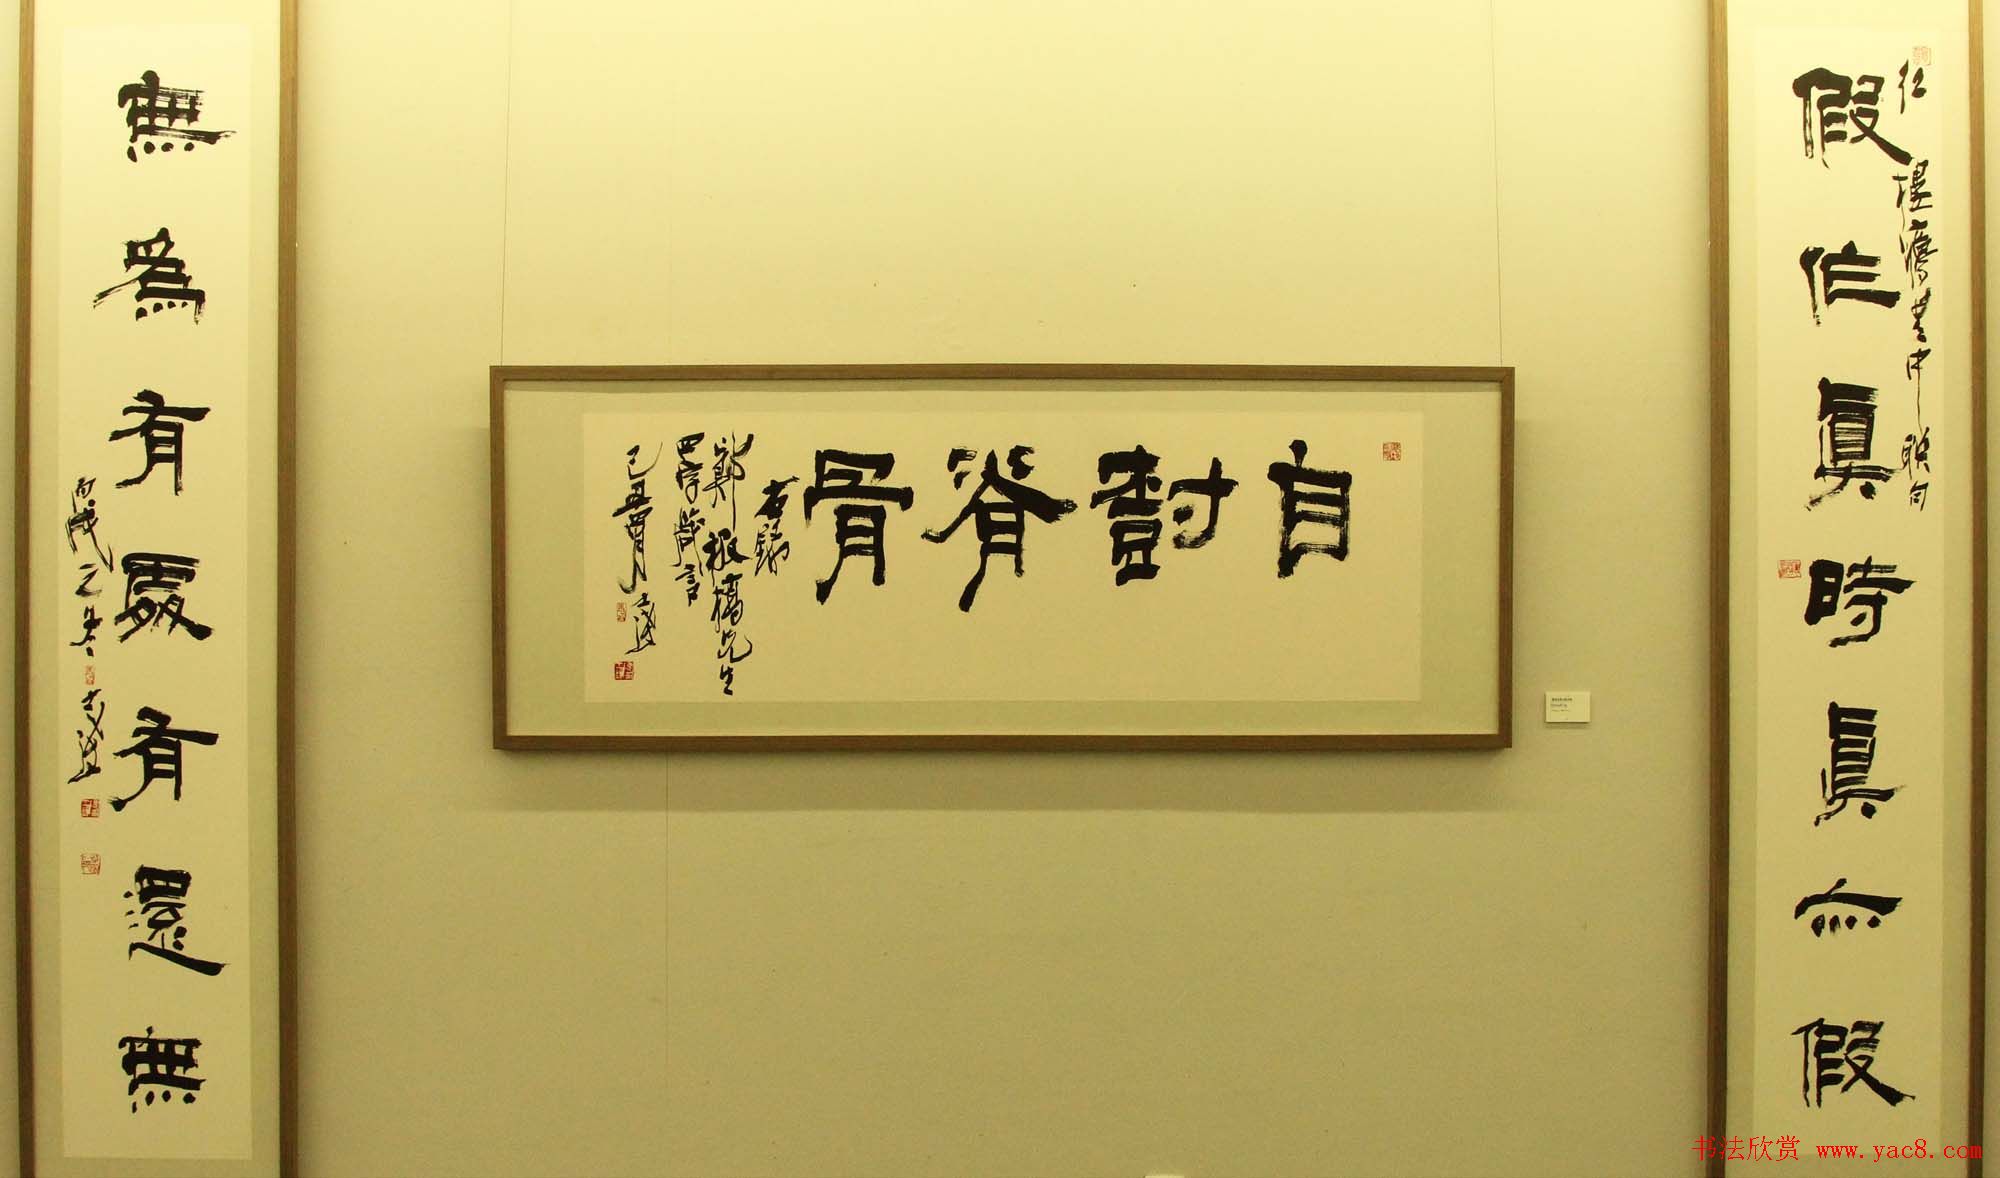 假作真時真亦假
红楼梦书中联句
自封脊骨
右録
鄭板橋先生
四字箴言
己丑
無為有處有還無
丙戌之冬
书法欣赏 www.yac8.com